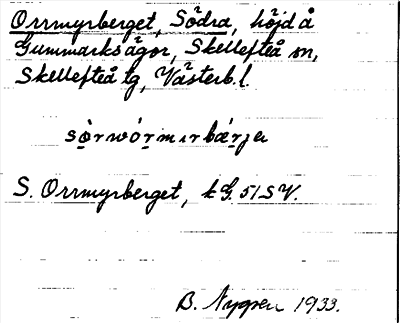 Orrmyrberget, Södra, höjd å
Gummarks ägor, Skellefteå sn,
Skellefteå tg, Västerb.l.
sö̀rwórmırbǽrjeɩ
S. Orrmyrberget, k G. 51 S V.
B. Nygren 1933.